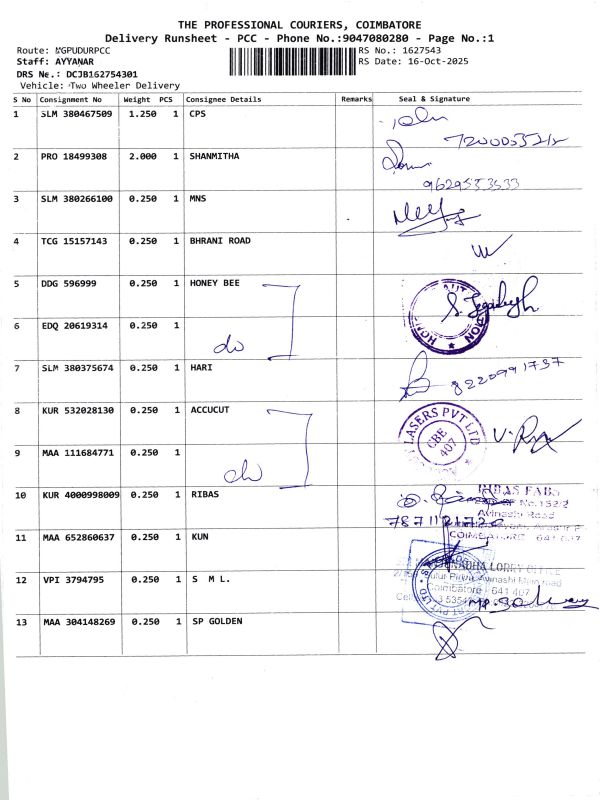 THE PROFESSIONAL COURIERS, COIMBATORE
Delivery Runsheet - PCC - Phone No.:9047080280 - Page No.:1
Route: NGPUDURPCC
RS No.: 1627543
Staff: AYYANAR
RS Date: 16-Oct-2025
DRS No.: DCJB162754301
Vehicle: Two Wheeler Delivery
S No Consignment No Weight PCS Consignee Details Remarks Seal & Signature
1 SLM 380467509 1.250 1 CPS
2 PRO 18499308 2.000 1 SHANMITHA
9629533533
3 SLM 380266100 0.250 1 MNS
4 TCG 15157143 0.250 1 BHRANI ROAD
5 DDG 596999 0.250 1 HONEY BEE
6 EDQ 20619314 0.250 1
do
7 SLM 380375674 0.250 1 HARI
8220991737
8 KUR 532028130 0.250 1 ACCUCUT
LASERS PVT LTD
CBE
407
9 MAA 111684771 0.250 1
do
10 KUR 4000998009 0.250 1 RIBAS
RIBAS FABS
Avinashi Road
COIMBATORE
11 MAA 652860637 0.250 1 KUN
LORRY OFFICE
Avinashi Main road
Coimbatore - 641 407
12 VPI 3794795 0.250 1 S M L.
13 MAA 304148269 0.250 1 SP GOLDEN